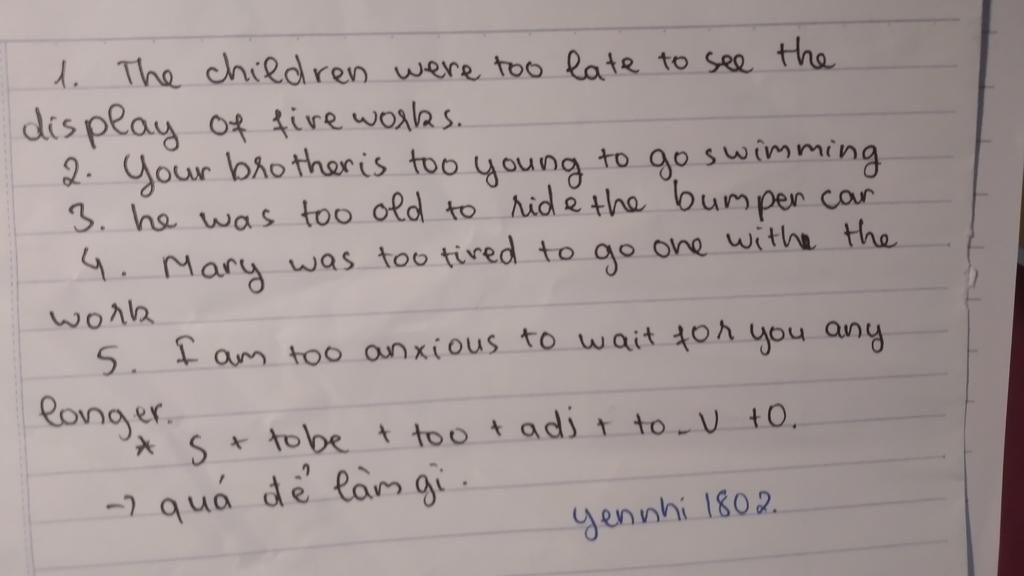 1. The children were too late to see the
display of fire works.
2. Your brother is too young to go swimming
3. he was too old to ride the bumper car
4. Mary was too tired to go one with the
work
5. I am too anxious to wait for you any
longer.
* S + tobe + too + adj + to_V + O.
→ quá để làm gì.
yennhi 1802.